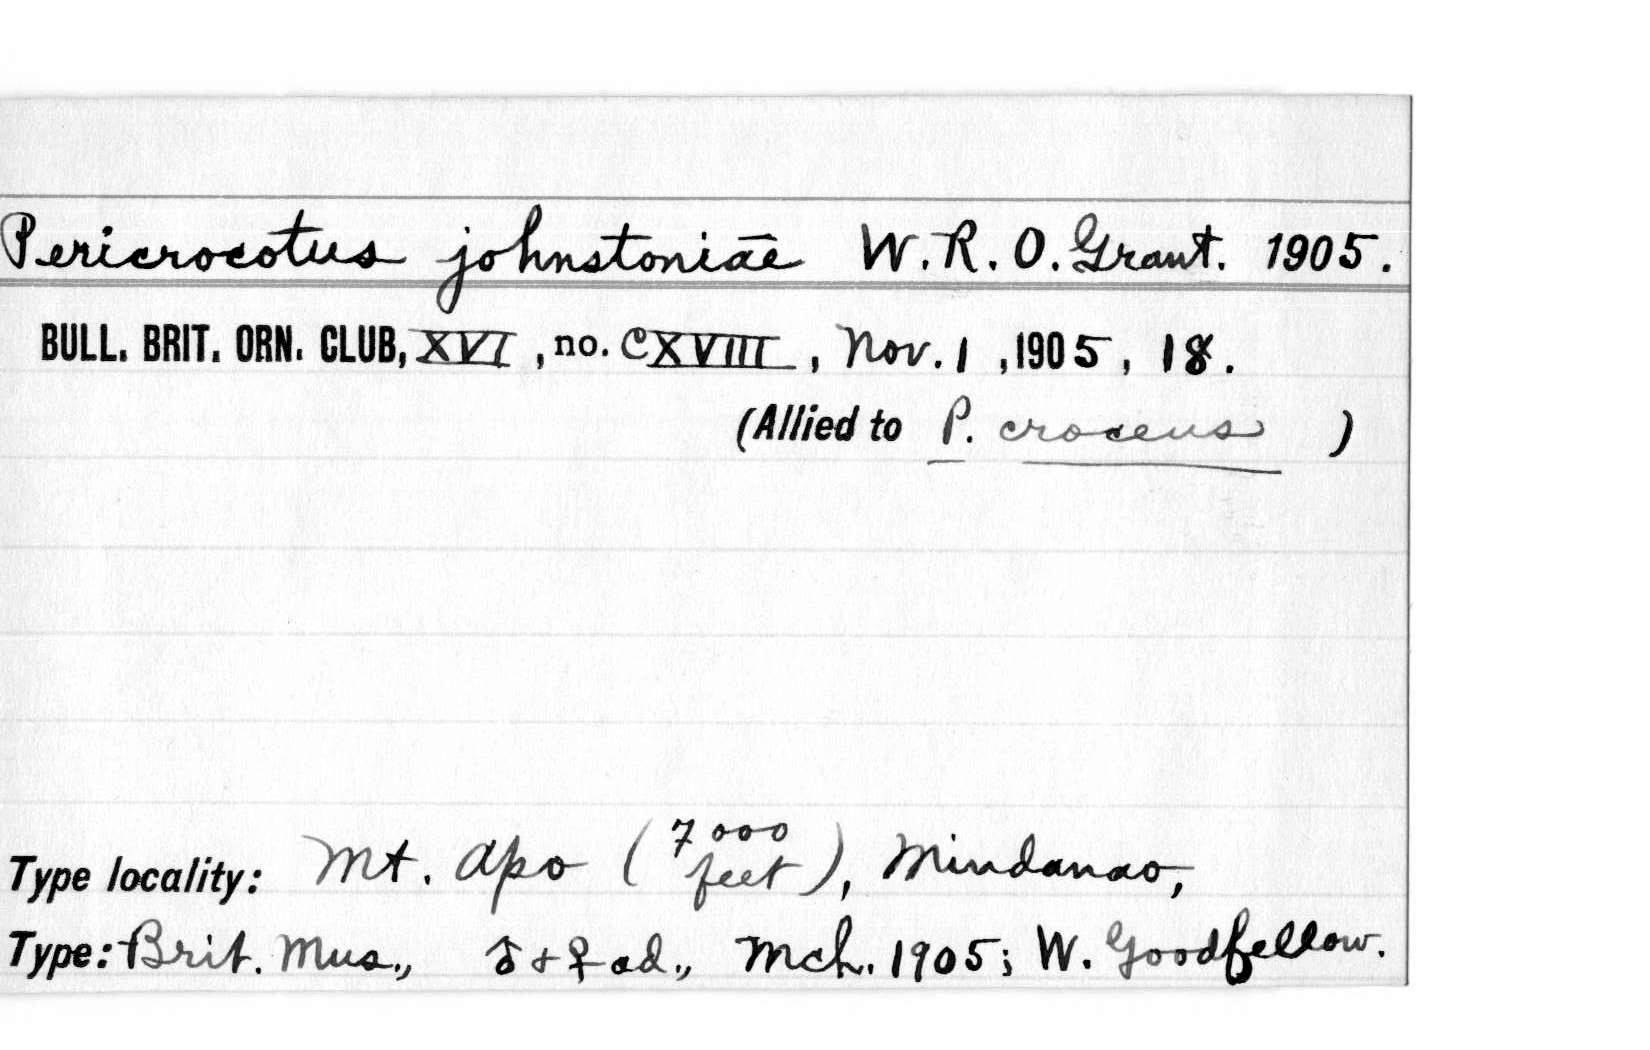 Pericrocotus johnstoniae W. R. O. Grant. 1905.
BULL. BRIT. ORN. CLUB, XVI, no. CXVIII, Nov. 1, 1905, 18.
(Allied to P. croceus )
Type locality: Mt. Apo (7000 feet), Mindanao,
Type: Brit. Mus., ♂ + ♀ ad., Mch. 1905; W. Goodfellow.